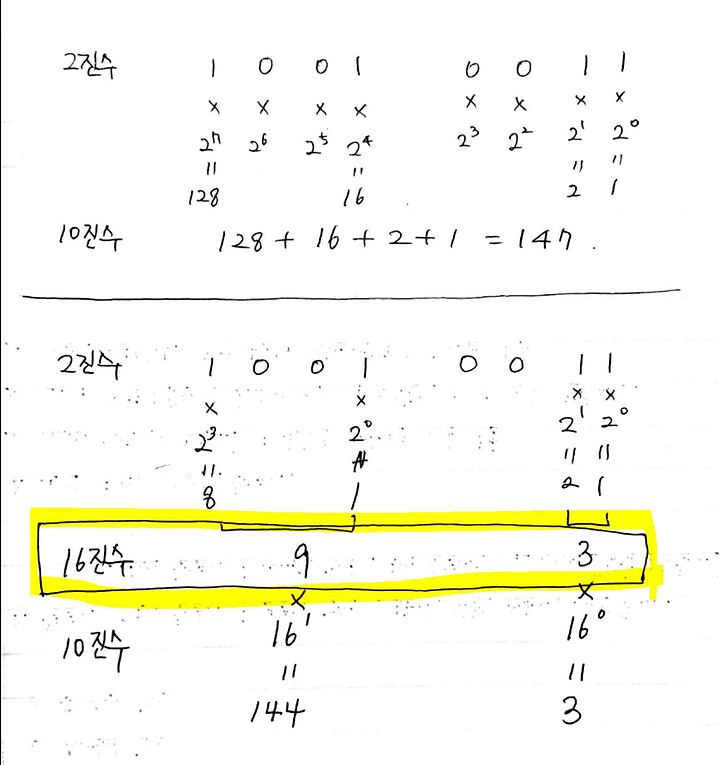 2진수 1 0 0 1 0 0 1 1
x x x x x x x x
2⁷ 2⁶ 2⁵ 2⁴ 2³ 2² 2¹ 2⁰
" " " "
128 16 2 1
10진수 128 + 16 + 2 + 1 = 147.
2진수 1 0 0 1 0 0 1 1
x x x x
2³ 2⁰ 2¹ 2⁰
" " " "
8 1 2 1
16진수 9 3
x x
10진수 16¹ 16⁰
" "
144 3